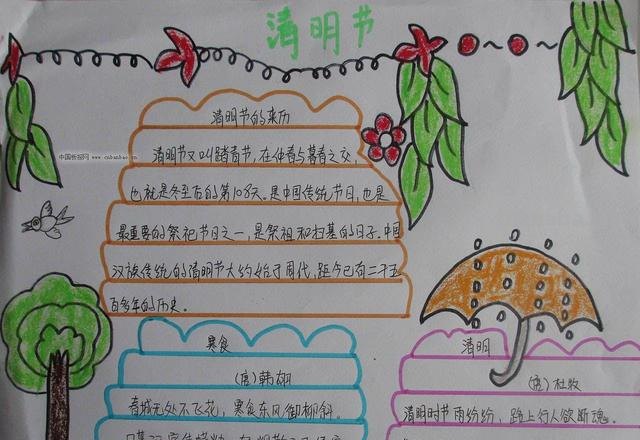 清明节
中国板报网 www.cnbanbao.cn
清明节的来历
清明节又叫踏青节,在仲春与暮春之交,
也就是冬至后的第108天。是中国传统节日,也是
最重要的祭祀节日之一,是祭祖和扫墓的日子.中国
汉族传统的清明节大约始于周代,距今已有二千五
百多年的历史。
寒食
(唐)韩翃
春城无处不飞花,寒食东风御柳斜。
清明
(唐)杜牧
清明时节雨纷纷,路上行人欲断魂。